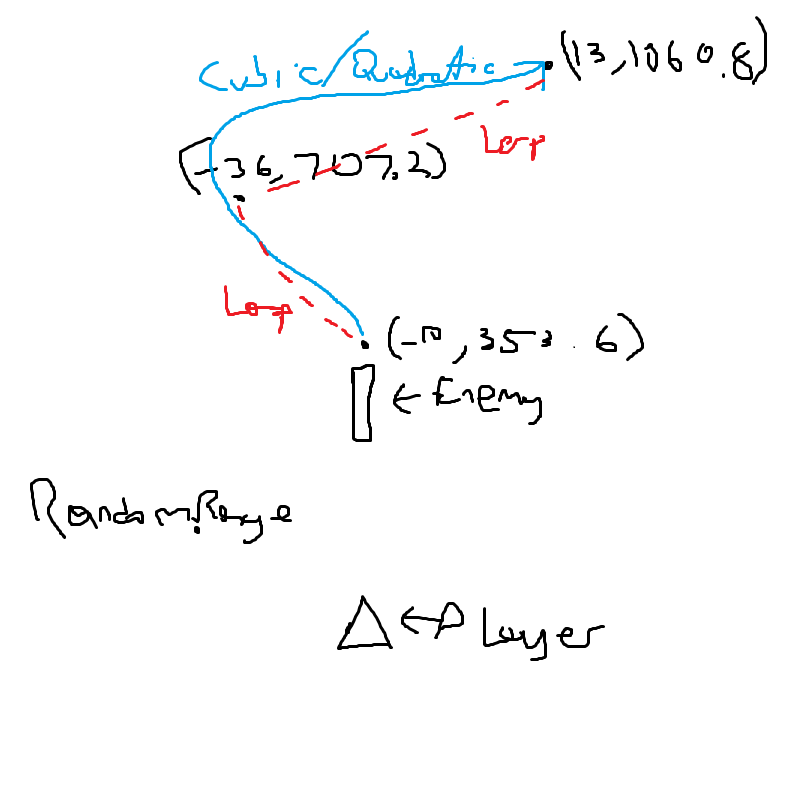 Cubic/Quadratic
(13,1060.8)
Lerp
(-36,707.2)
Lerp
(-10,353.6)
← Enemy
Random.Range
← Player